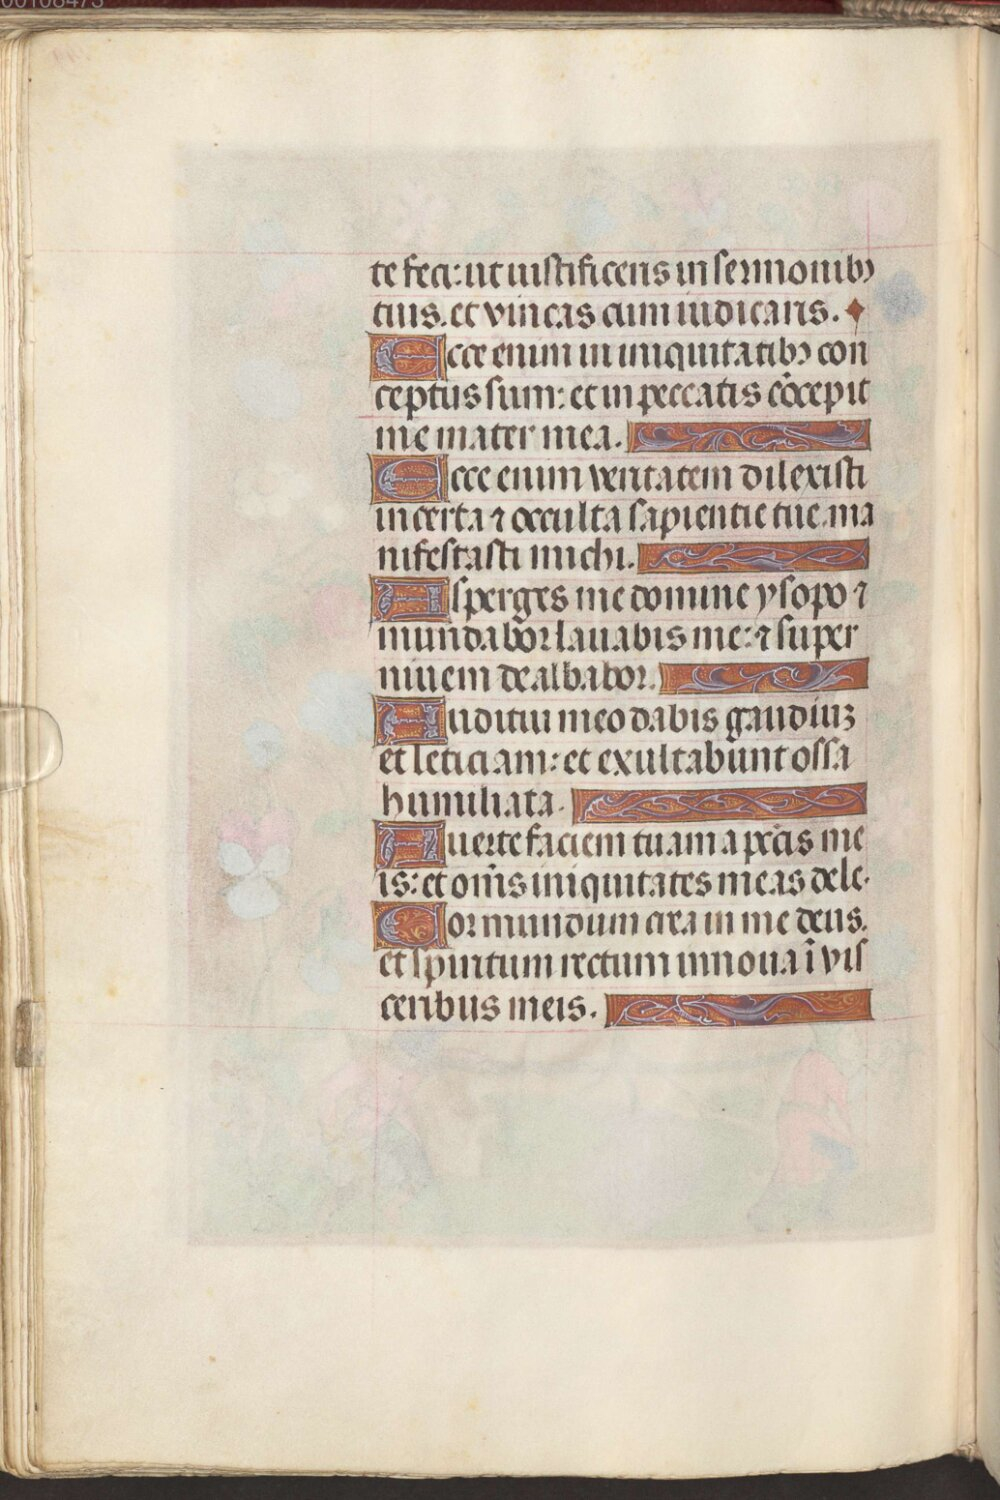 00108473
te feci: ut iustificeris in sermonibꝫ
tuis. et vincas cum iudicaris.
Ecce enim in iniquitatibꝫ con
ceptus sum: et in peccatis cõcepit
me mater mea.
Ecce enim veritatem dilexisti
incerta ⁊ occulta sapientie tue ma
nifestasti michi.
Asperges me domine ysopo ⁊
mundabor lauabis me: ⁊ super
niuem dealbabor.
Auditui meo dabis gaudiuꝫ
et leticiam: et exultabunt ossa
humiliata.
Auerte faciem tuam a pcc̃is me
is: et om̃s iniquitates meas dele.
Cor mundum crea in me deus.
et spiritum rectum innoua ĩ vis
ceribus meis.